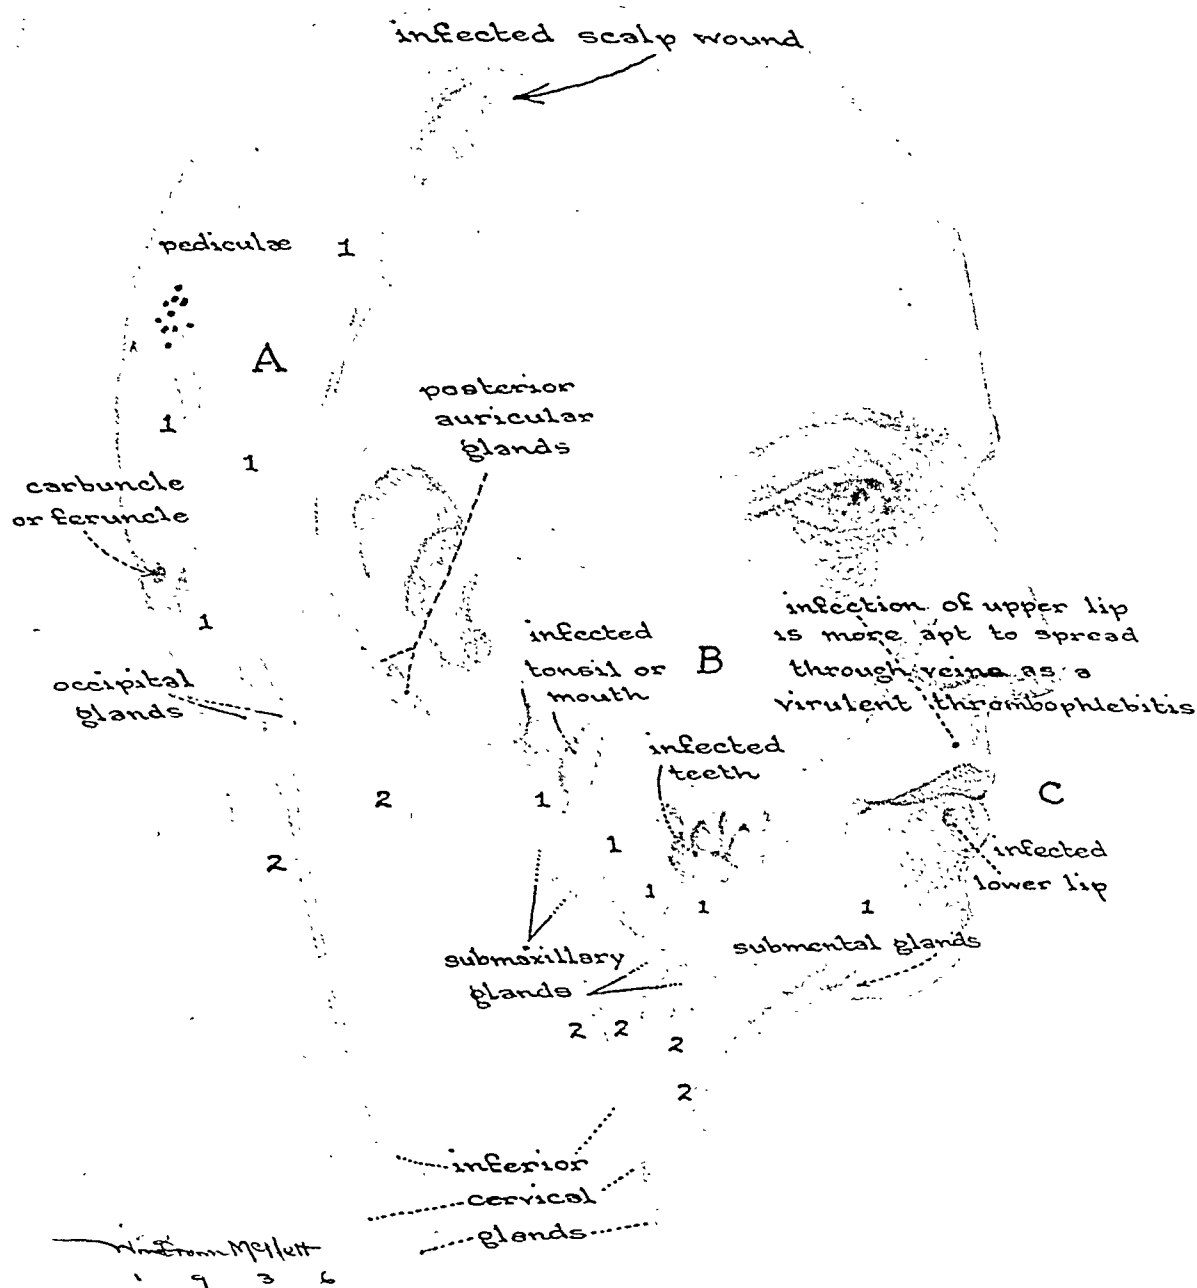 infected scalp wound
pediculæ 1
A
posterior
auricular
glands
1
1
carbuncle
or feruncle
1
occipital
glands
infected
tonsil or
mouth
B
infection of upper lip
is more apt to spread
through veins as a
virulent thrombophlebitis
infected
teeth
2
1
C
1
2
infected
lower lip
1
1
1
submaxillary
glands
submental glands
2 2
2
2
inferior
cervical
glands
1 9 3 6